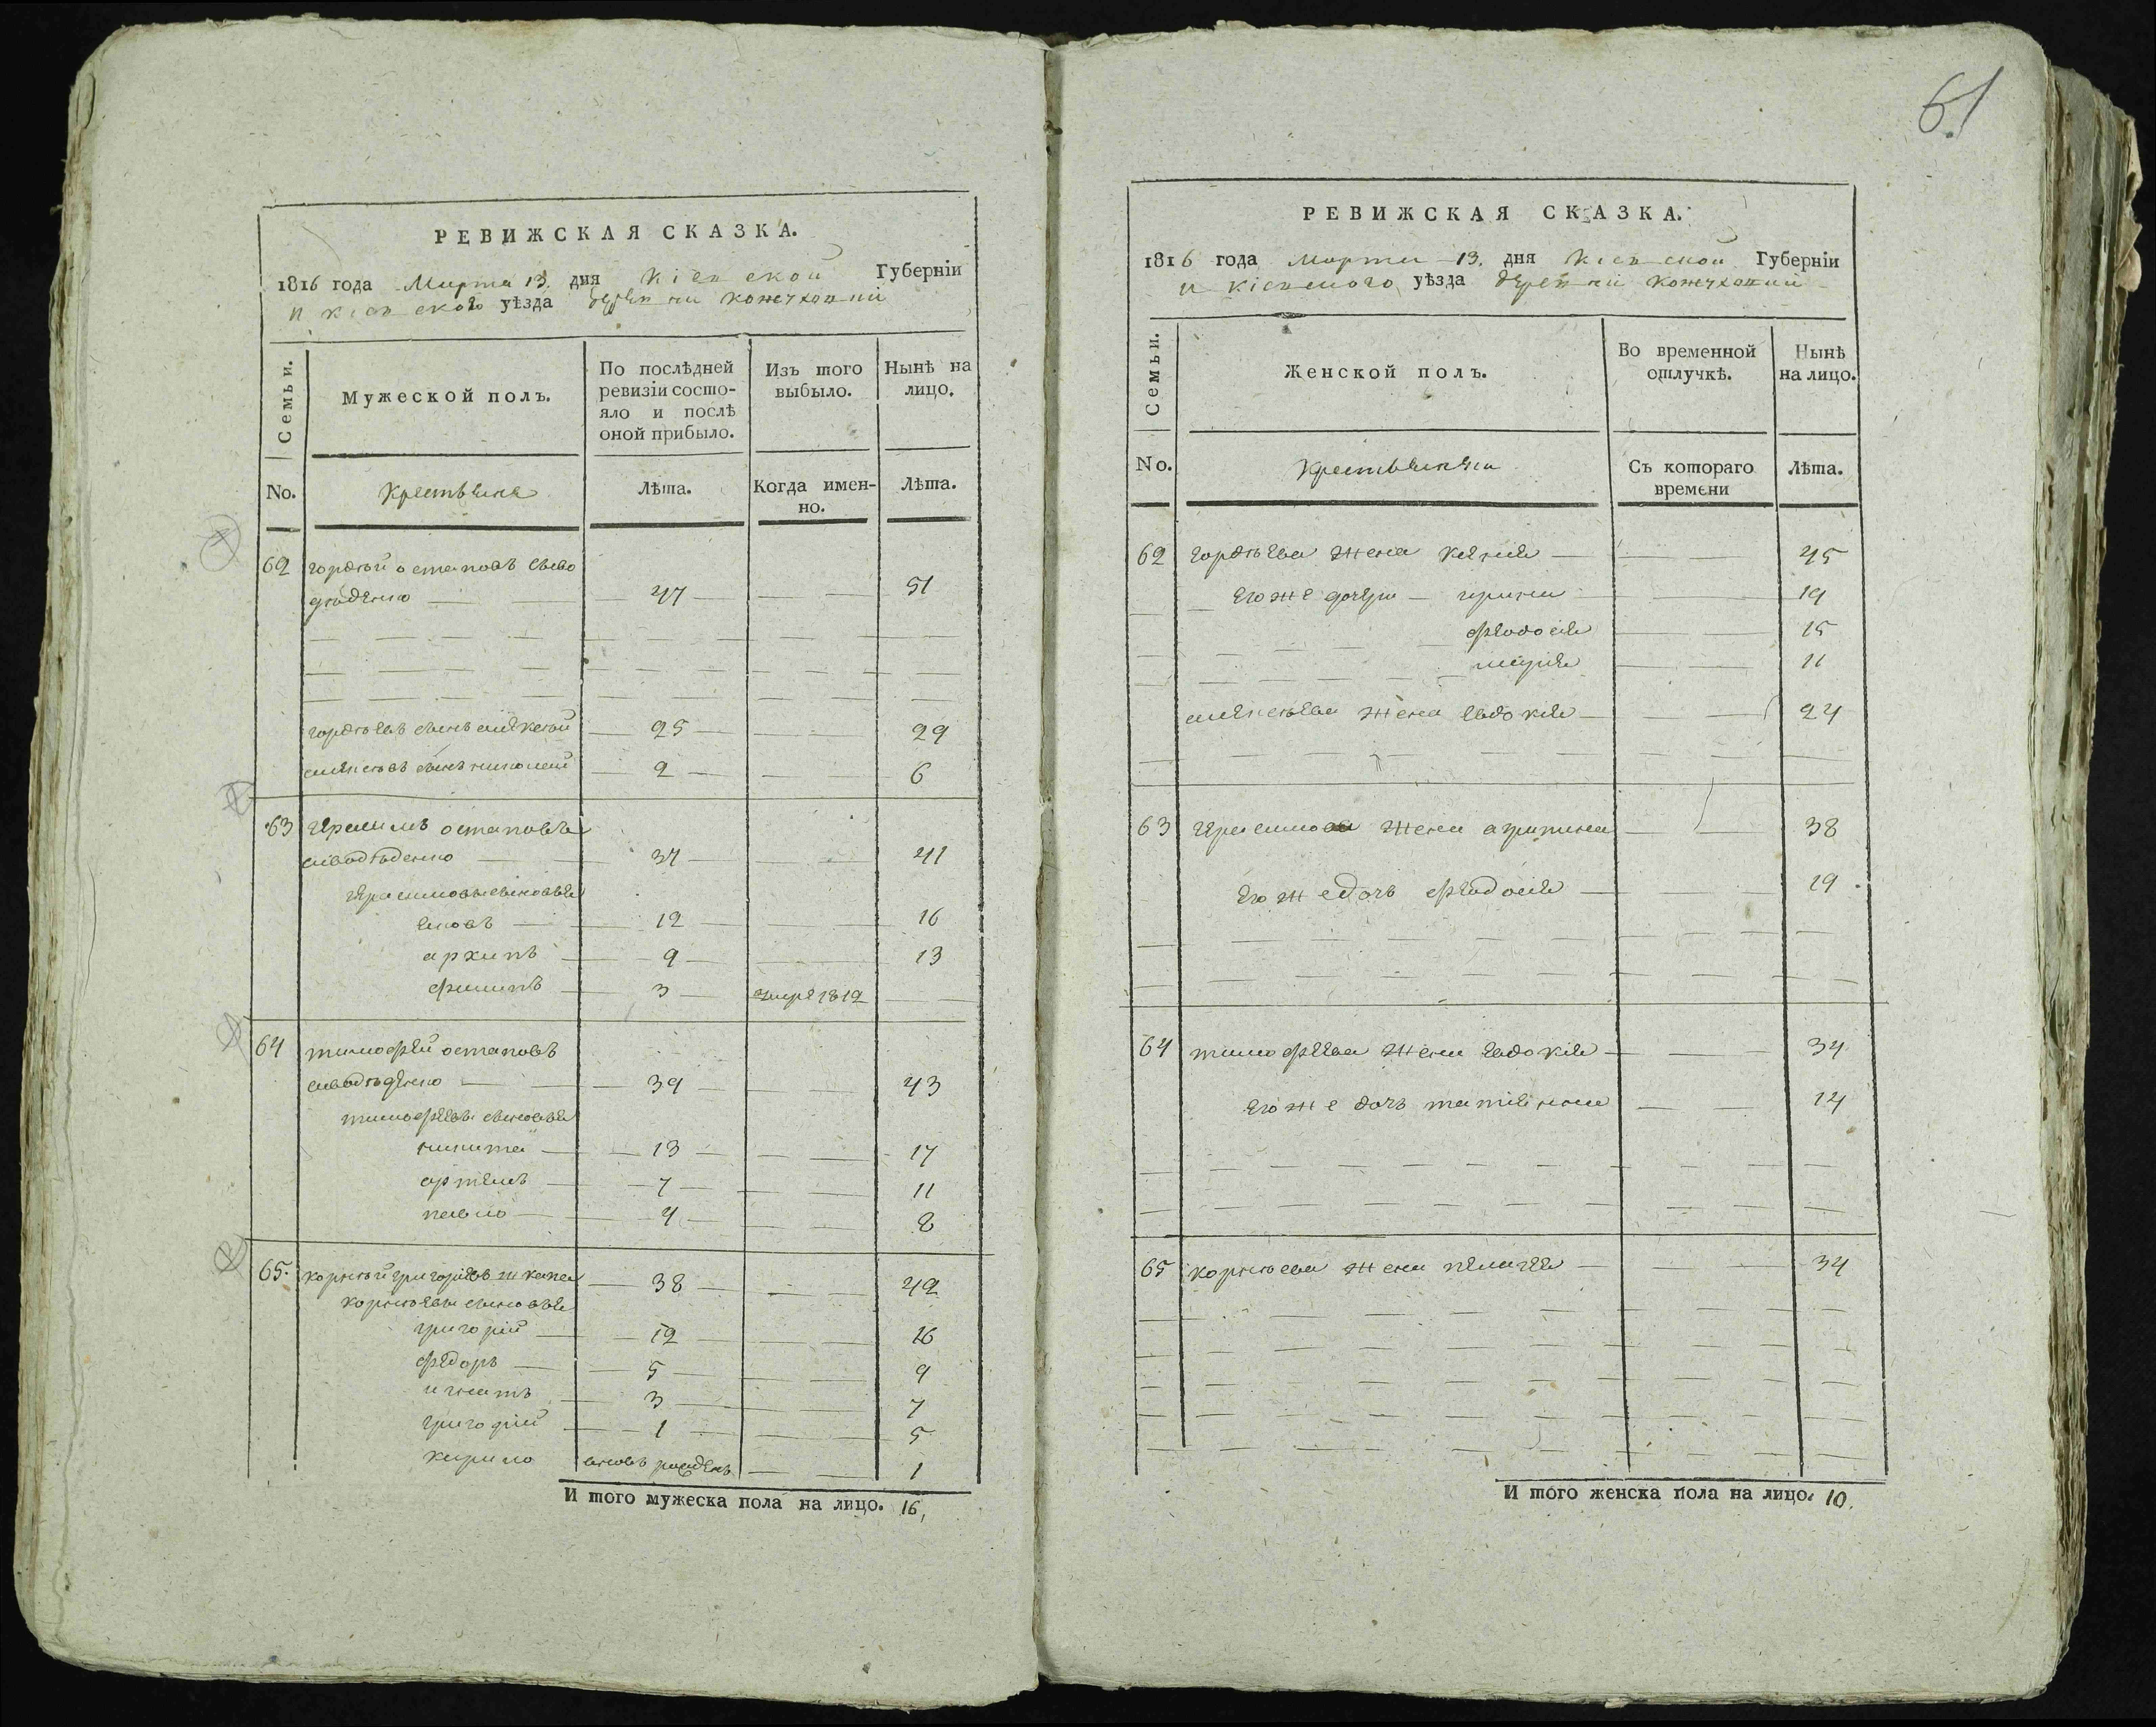 61
РЕВИЖСКАЯ СКАЗКА.
1816 года Марта 13. дня Кіевской Губерніи
и кіевского уѣзда деревни
Семьи.
Мужеской полъ.
По послѣдней ревизіи состояло и послѣ оной прибыло.
Изъ того выбыло.
Нынѣ на лицо.
No.
Крестьяне
Лѣта.
Когда именно.
Лѣта.
62 гордѣй остаповъ
47 51
гордѣевъ сынъ алексѣй 25 29
алексѣевъ сынъ николай 2 6
63 герасимъ остаповъ
37 41
герасимовы сыновья
яковъ 12 16
архипъ 9 13
филипъ 3 умре 1812
64 тимофей остаповъ
39 43
тимофеевы сыновья
никита 13 17
артемъ 7 11
павло 4 8
65. корнѣй григоріевъ 38 42
корнѣевы сыновья
григорій 12 16
федоръ 5 9
игнатъ 3 7
григорій 1 5
кирило вновь рожденъ 1
И того мужеска пола на лицо. 16,
РЕВИЖСКАЯ СКАЗКА.
1816 года марта 13. дня кіевской Губерніи
и кіевского уѣзда деревни
Семьи.
Женской полъ.
Во временной отлучкѣ.
Нынѣ на лицо.
No.
Крестьянки
Съ котораго времени
Лѣта.
62 гордѣева жена ксенія 45
его же дочери ирина 19
феодосія 15
марія 11
алексѣева жена евдокія 24
63 герасимова жена агрипина 38
его же дочь феодосія 19
64 тимофеева жена евдокія 34
его же дочь татіянна 14
65 корнѣева жена пелагея 34
И того женска пола на лицо. 10.